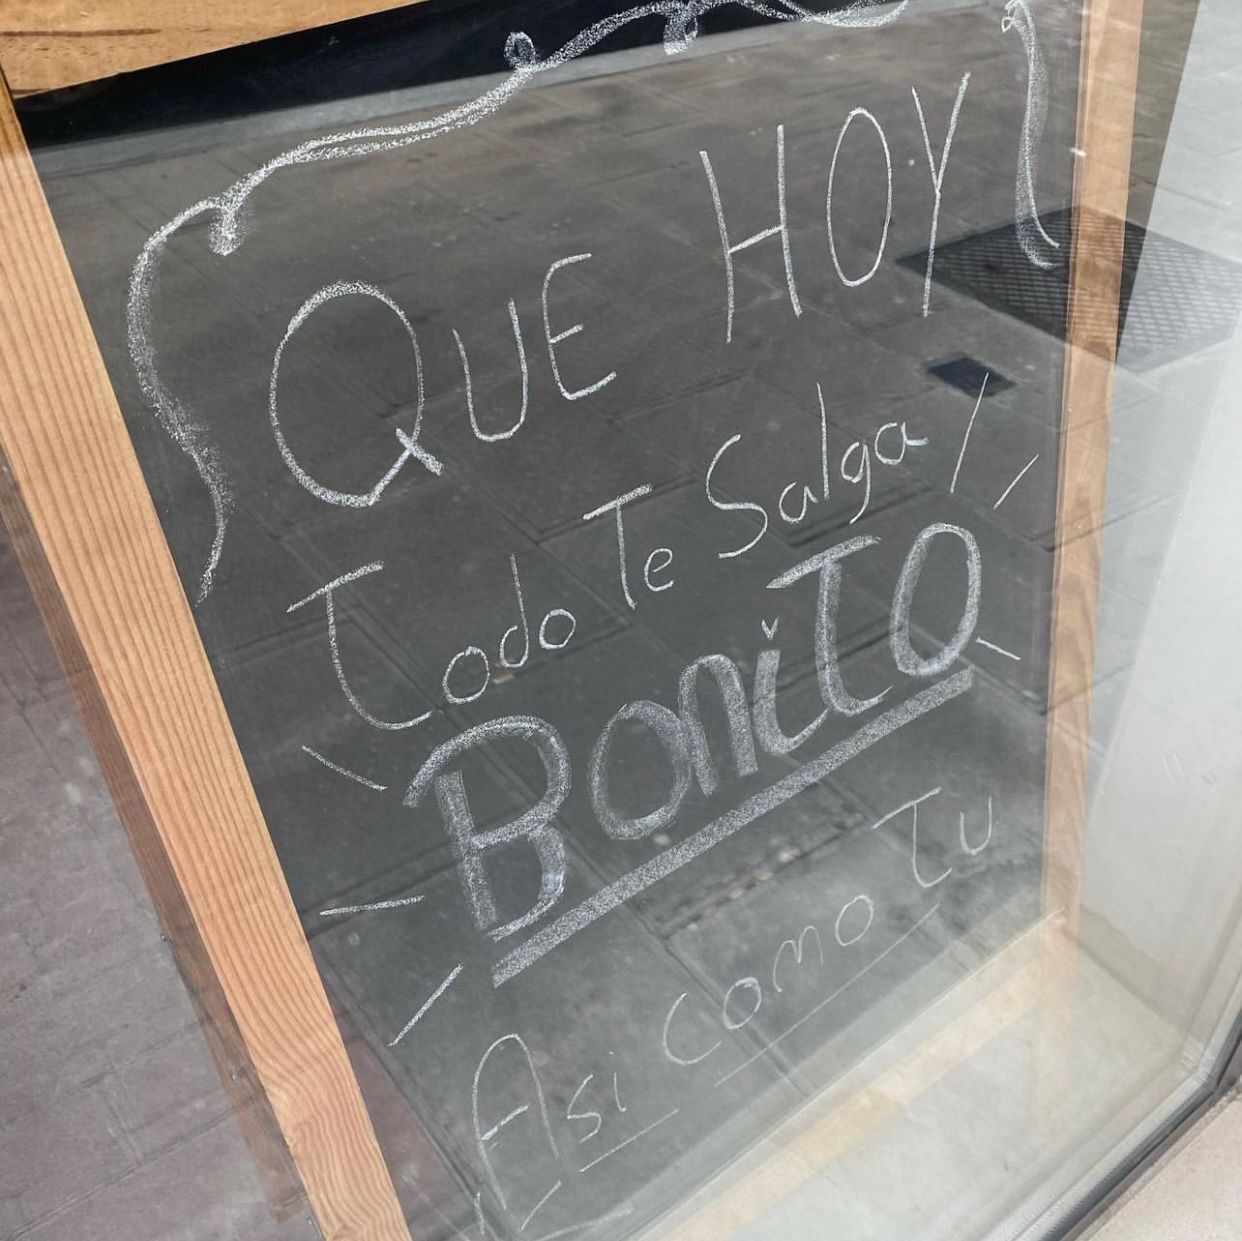 QUE HOY
Todo Te Salga
BoniTO
Asi como Tu